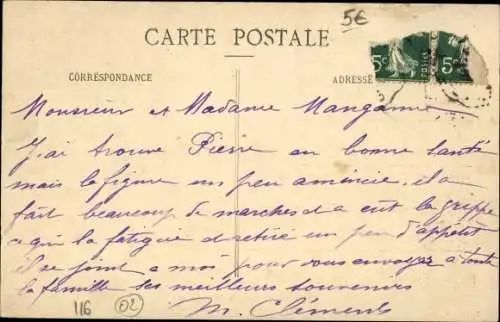 5€
CARTE POSTALE
CORRESPONDANCE
ADRESSE
5c POSTES 5c
Monsieur et Madame Mangamme
J'ai trouvé Pierre en bonne santé
mais la figure un peu amincie, il a
fait beaucoup de marches et a eut la grippe
ce qui la fatigué et retiré un peu d'appétit
il se joint a moi pour vous envoyer a toute
la famille ses meilleurs souvenirs
M. Cléments
116
02